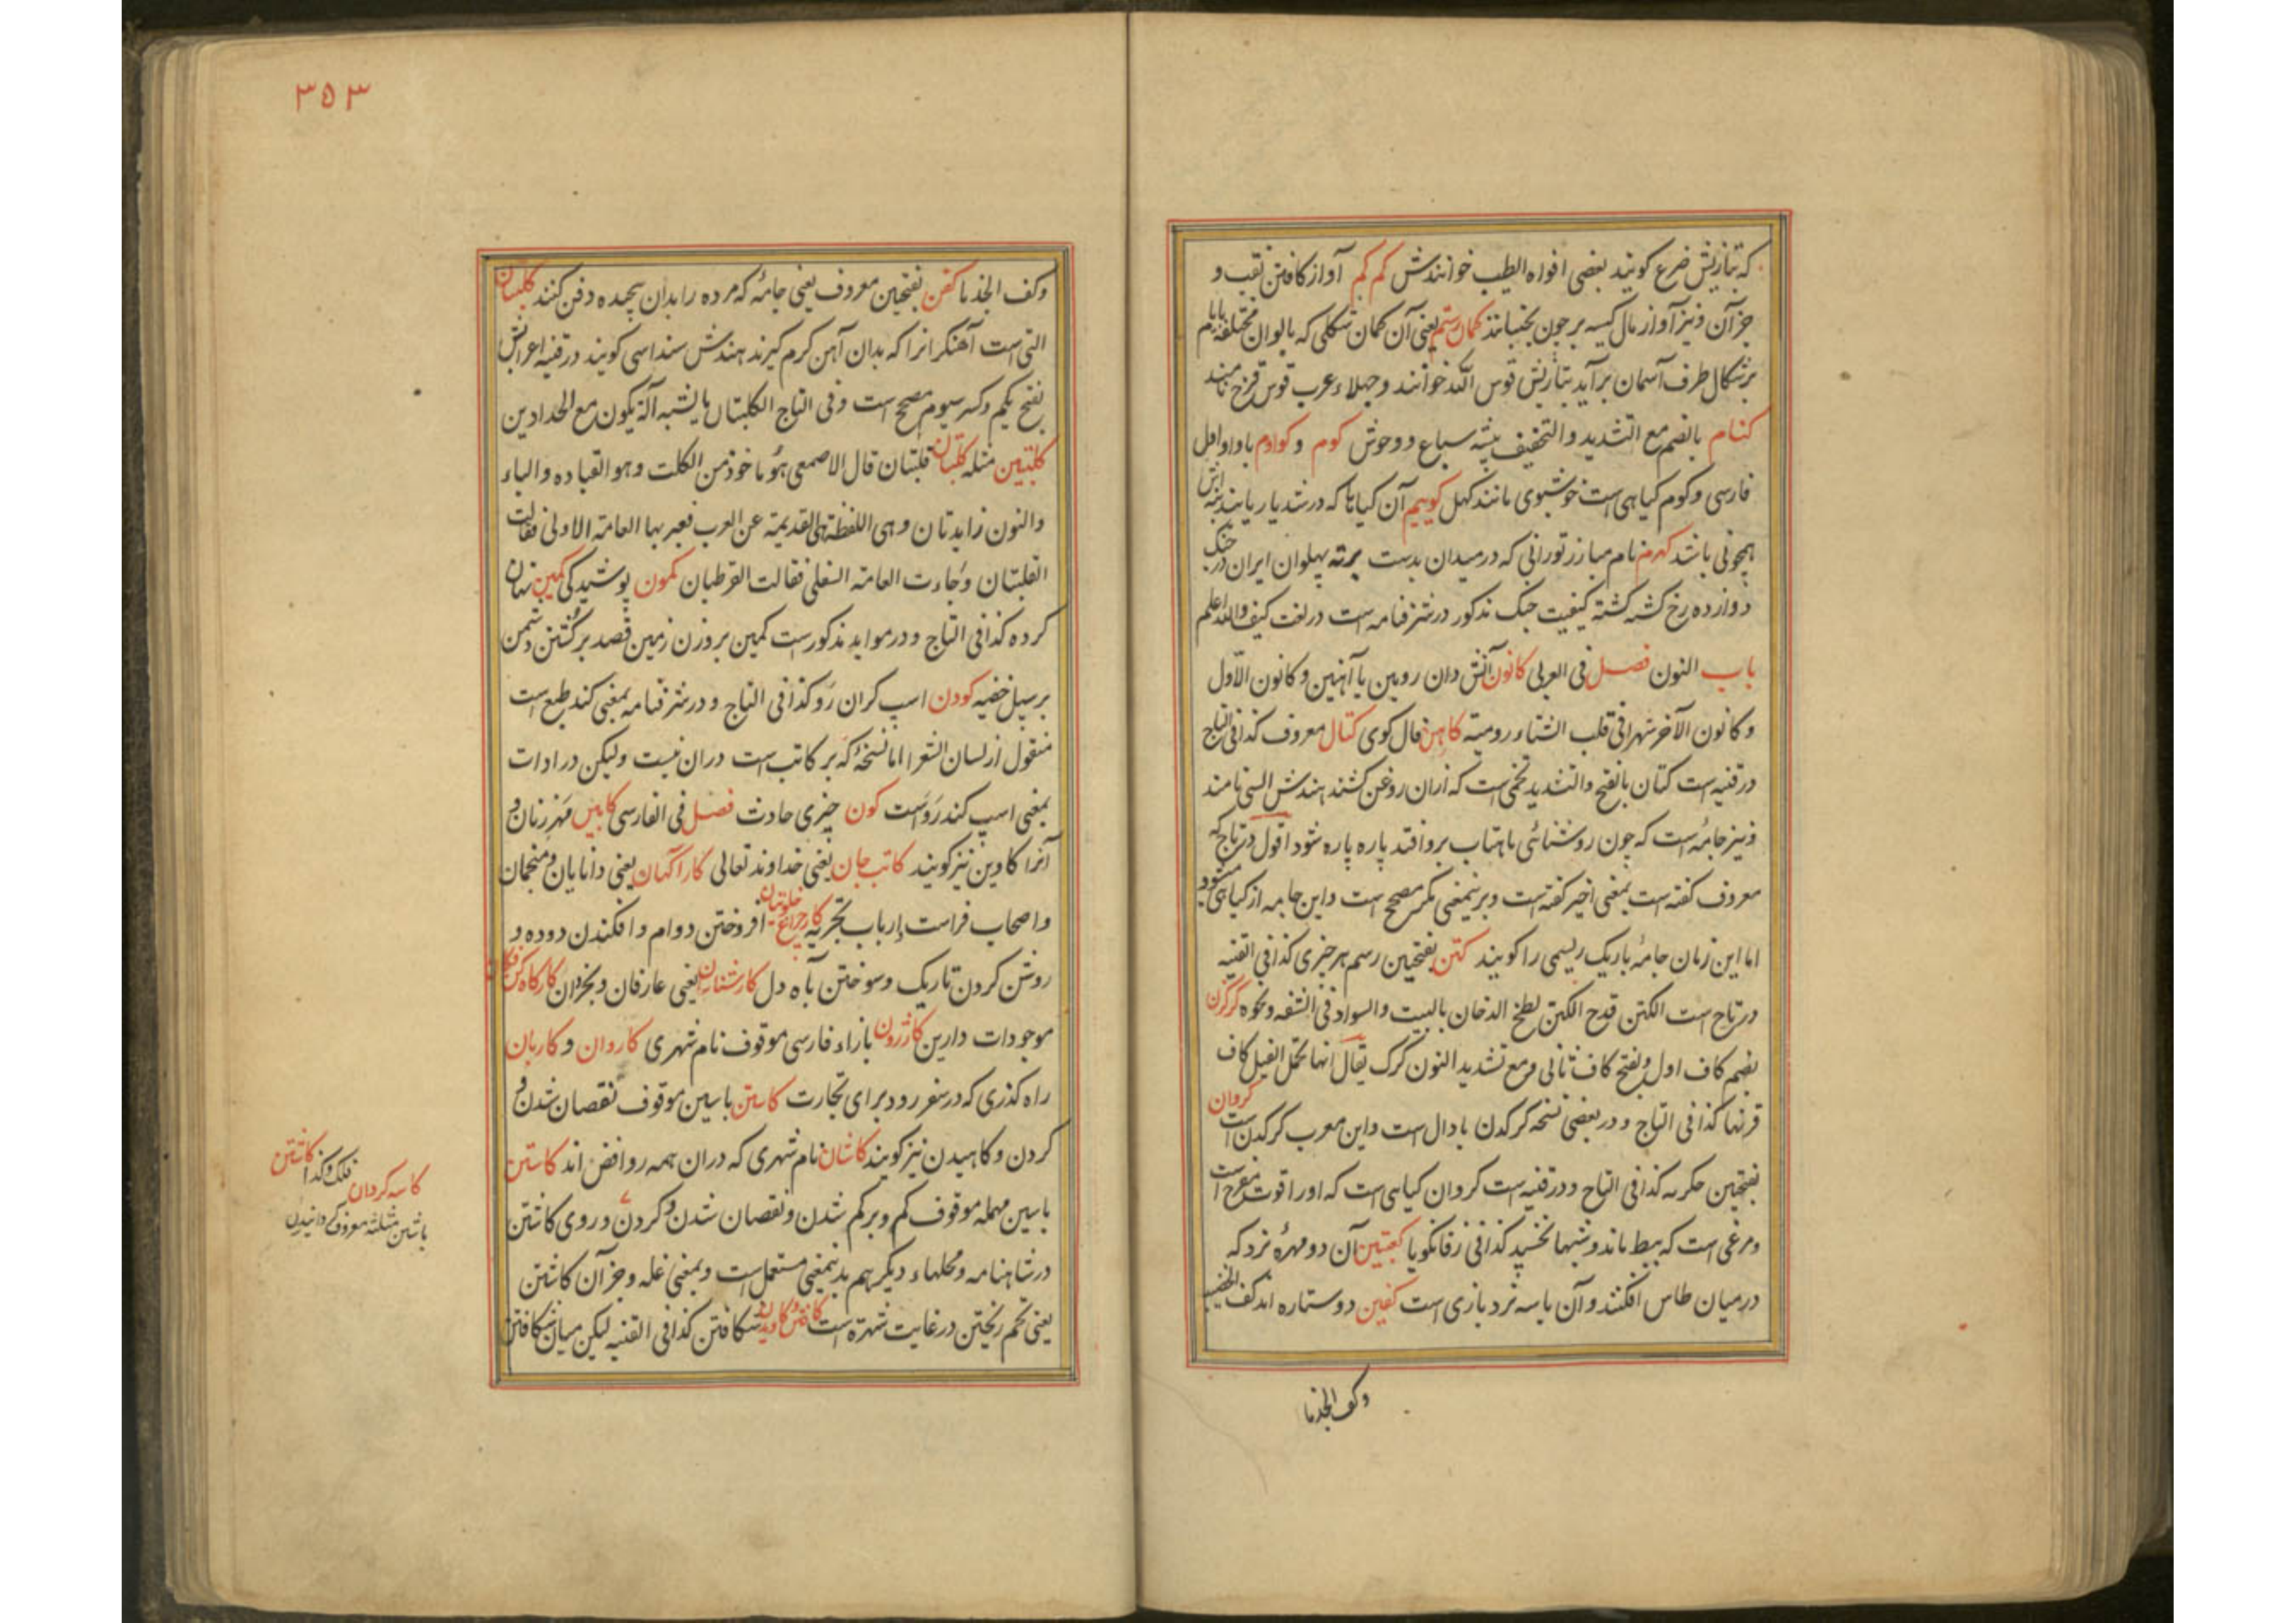 که بتازیش ضرع کویند بعضی افواه الطیب خوانندش کم کم آواز کافتن نقب و
جز آن و نیز آواز بال کیسه بر چون بجنبانند کمان رستم یعنی آن کمان شکلی که بالوان مختلفه ایام
برشکال طرف آسمان برآید بتازیش قوس الله خوانند و جهلاء عرب قوس قزح نامند
کنام بالضم مع التشدید والتخفیف بیشه سباع و وحوش کوم و کوادم با واو اول
فارسی و کوم کیاهی است خوشبوی مانند کهل کوییم آن کیاها که در شدیار یابند
همچو نی باشد کهرم نام مبارز تورانی که در میدان بدست برته پهلوان ایران در جنک
دوازده رخ کشته کشته کیفیت جنک مذکور در شرفنامه است در لغت کیف والله اعلم
باب النون فصل فی العربی کانون آتش دان رویین یا آهنین و کانون الاول
و کانون الآخر شهران فی قلب الشتاء رومیته کاهن فال کوی کتان معروف کذا فی التاج
در قنیه است کتان بالفتح والتشدید تخمی است که ازان روغن کشند هندش السی نامند
و نیز جامه است که چون روشنائی ماهتاب برو افتد پاره پاره شود اقول در تاج که
معروف کفته است بمعنی اخیر کفته است و برینمعنی مکر مصحح است و این جامه از کیاهی میشود
اما این زمان جامۀ باریک ریسمی را کویند کتن بفتحین رسم هر چیزی کذا فی القنیه
در تاج است الکتن قدح الکتن لطخ الدخان بالبیت والسواد فی الشفه و نحوه کرکدن
بضم کاف اول و بفتح کاف ثانی و مع تشدید النون کرک یقال انها تحمل الفیل کاف
قرنها کذا فی التاج و در بعضی نسخه کرکدن با دال است و این معرب کرکدن است کروان
بفتحتین حکرنه کذا فی التاج و در قنیه است کروان کیاهی است که او را قوت مفرح است
و مرغی است که ببط ماند و شبها نخسپد کذا فی زفانکویا کعبتین آن دو مهرۀ نرد که
در میان طاس افکنند و آن با سه نرد بازی است کفین دو ستاره اند کف الخضیب
وکف الجذما
۳۵۳
وکف الجذما کفن بفتحین معروف یعنی جامۀ که مرده را بدان پیچیده دفن کنند کلبتان
التی است آهنکرانرا که بدان آهن کرم کیرند هندش سنداسی کویند در قنیه اعرابش
بفتح یکم و کسر سیوم مصحح است و فی التاج الکلبتان ما یشبه آلة یکون مع الحدادین
کلبتین مثله کلتبان قلتبان قال الاصمعی هو ماخوذ من الکلت وهو القیاده والباء
والنون زایدتان وهی اللفظة القدیمة عن العرب فعبر بها العامة الاولی فقالت
القلتبان وجاءت العامة السفلی فقالت القرطبان کمون پوشیدکی کمین نهان
کرده کذا فی التاج و در مواید مذکور است کمین بر وزن زمین قصد بر کشتن دشمن
بر سبیل خفیه کودن اسپ کران رو کذا فی التاج و در شرفنامه بمعنی کند طبع است
منقول از لسان الشعرا اما نسخۀ که بر کاتب است دران نیست ولیکن در ادات
بمعنی اسپ کند رو است کون چیزی حادث فصل فی الفارسی کابین مهر زنان و
آنرا کاوین نیز کویند کاتب جان یعنی خداوند تعالی کارآکهان یعنی دانایان و منجمان
و اصحاب فراست و ارباب تجربه کار چراغ خلوتیان افروختن دوام و افکندن دوده و
روشن کردن تاریک و سوختن بآه دل کارشناسان یعنی عارفان و بخردان کارکاه کن فکان
موجودات دارین کازرون بازاء فارسی موقوف نام شهری کاروان و کاربان
راه کذری که در سفر رود برای تجارت کاستن باسین موقوف نقصان شدن و
کردن و کاهیدن نیز کویند کاشان نام شهری که دران همه روافض اند کاستن
باسین مهمله موقوف کم و برکم شدن و نقصان شدن و کردن و روی کاشتن
در شاهنامه و محلهاء دیکر هم بدینمعنی مستعمل است و بمعنی غله و جز آن کاشتن
یعنی تخم ریختن در غایت شهرة است کافتن و کاویدن شکافتن کذا فی القنیه لیکن میان شکافتن
کاسه کردان فلک و کذا کاشتن
باشین مثلثه معروف و کردانیدن